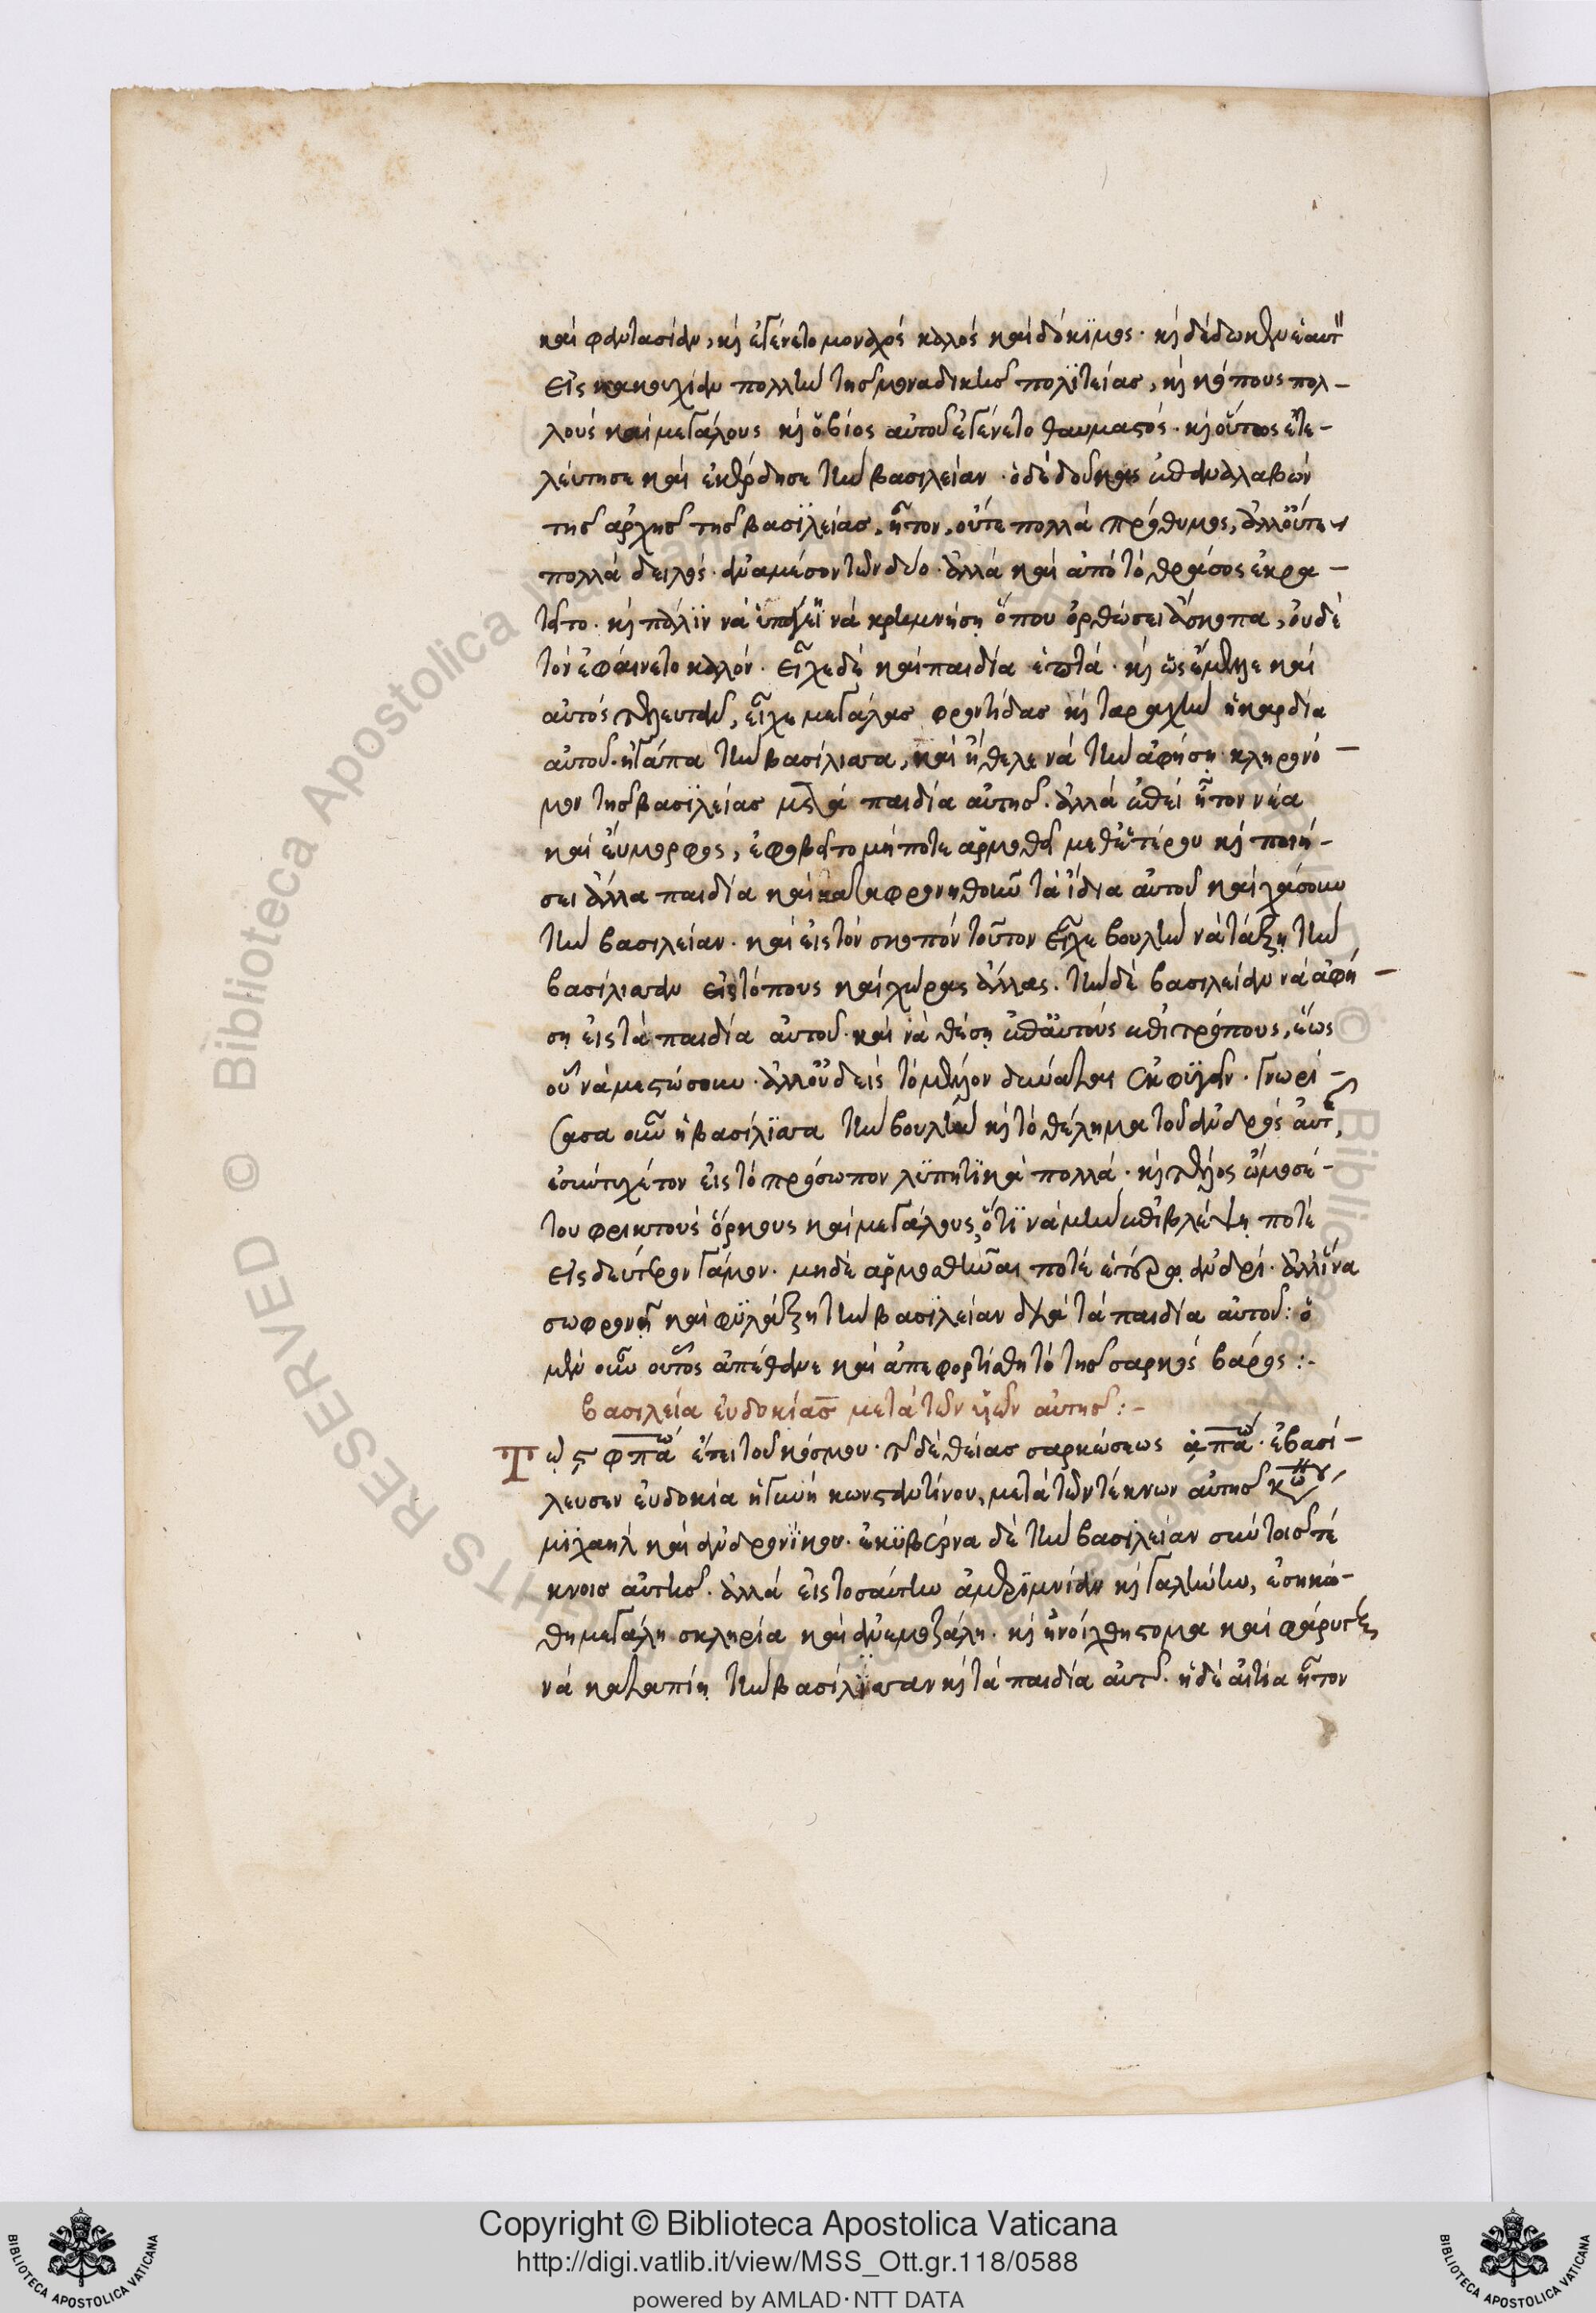 καὶ φαντασίαν, κὶ ἐγένετο μοναχός καλός καὶ δόκιμος · κὶ δέδωκεν ἑαυτ
εἰς κακουχίαν πολλὴν τῆς μοναδικῆς πολϊτείας, κὶ κόπους πολ-
λούς καὶ μεγάλους κὶ ὁ βίος αὐτοῦ ἐγένετο θαυμαστός · κὶ οὕτως ἐτε-
λεύτησε καὶ ἐκέρδησε τὴν βασιλείαν · ὁ δὲ δούκας ἐπαναλαβών
τῆς ἀρχῆς τῆς βασϊλείας, ἦτον, οὔτε πολλά πρόθυμος, ἀλλ' οὔτε
πολλά δειλός · ἀναμέσον τῶν δύο · ἀλλά καὶ ἀπό τὸ θράσος ἐκρα-
τεῖτο · κὶ πάλϊν νὰ ὑπάγει νὰ κρεμνήση ὅπου ὀρθώσει ἄσκοπα, οὐδέ
τὸν ἐφαίνετο καλόν · εἶχε δὲ καὶ παιδία ἑπτά · κὶ ὡς ἔμελλε καὶ
αὐτός τελευτᾶν, εἶχε μεγάλας φροντίδας κὶ ταραχὴν ἡ καρδία
αὐτοῦ · ἠγάπα τὴν βασίλισσα, καὶ ἤθελε νὰ τὴν ἀφήση κληρονό-
μον τῆς βασϊλείας μετὰ παιδία αὐτῆς · ἀλλά ἐπεί ἦτον νέα
καὶ εὔμορφος, ἐφοβεῖτο μήποτε ἁρμοθεῖ μεθ' ἑτέρου κὶ ποιή-
σει ἄλλα παιδία καὶ καταφρονηθοῦν τὰ ἴδια αὐτοῦ καὶ χάσουν
τὴν βασιλείαν · καὶ εἰς τὸν σκοπόν τοῦτον εἶχε βουλὴν νὰ τάξη τὴν
βασίλισσαν εἰς τόπους καὶ χώρας ἄλλας · τὴν δὲ βασιλείαν νὰ ἀφή-
ση εἰς τὰ παιδία αὐτοῦ · καὶ νὰ θέση ἐπ' αὐτούς ἐπιτρόπους, ἕως
οὗ νὰ μεστώσουν · ἀλλ' οὐδεὶς τὸ μέλλον δύναται ἐκφϋγεῖν · γνωρί-
ζασα οὖν ἡ βασίλϊσσα τὴν βουλὴν κὶ τὸ θέλημα τοῦ ἀνδρός αὐτ,
ἐσύντυχέ τον εἰς τὸ πρόσωπον λϋπητϊκά πολλά · κὶ τέλος ὤμοσέ-
του φρικτούς ὅρκους καὶ μεγάλους, ὅτϊ νὰ μὴν ἐπιβλέψη ποτέ
εἰς δεύτερον γάμον · μηδὲ ἁρμοσθῆναι ποτέ ἑτέρω ἀνδρί · ἀλλ' ἵνα
σωφρονῆ καὶ φϋλάξη τὴν βασϊλείαν διὰ τὰ παιδία αὐτοῦ : ὁ
μὲν οὖν οὗτος ἀπέθανε καὶ ἀπεφορτίσθη τὸ τῆς σαρκός βάρος :-
βασιλεία εὐδοκίας μετὰ τῶν ὑϊῶν αὐτῆς :-
Τῶ ͵ς φπα ω ἔτει τοῦ κόσμου · τ δὲ θείας σαρκώσεως ͵απα ω · ἐβασί-
λευσεν εὐδοκία ἡ γυνή κωνσταντίνου, μετὰ τῶν τέκνων αὐτῆς
μϊχαὴλ καὶ ἀνδρονίκου · ἐκϋβέρνα δὲ τὴν βασϊλείαν σὺν τοῖς τέ
κνοις αὐτῆς · ἀλλά εἰς τοσαύτην ἀμερϊμνίαν κὶ γαλήνην, ἐσηκώ-
θη μεγάλη σκληρία καὶ ἀνεμοζάλη · κὶ ἠνοίχθη στόμα καὶ φάρυγξ
νὰ καταπίη τὴν βασίλϊσσαν κὶ τὰ παιδία αὐτ · ἡ δὲ αἰτία ἦτον
Copyright © Biblioteca Apostolica Vaticana
http://digi.vatlib.it/view/MSS_Ott.gr.118/0588
powered by AMLAD·NTT DATA